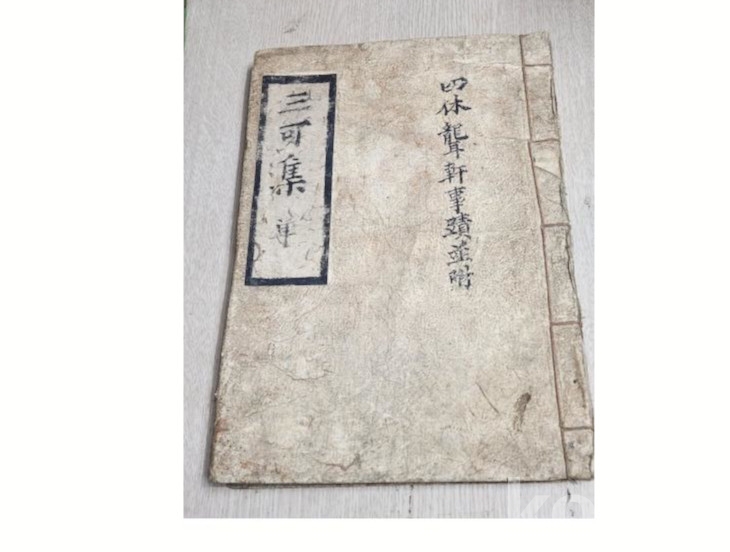 四休聾軒事蹟並附
三可集 單